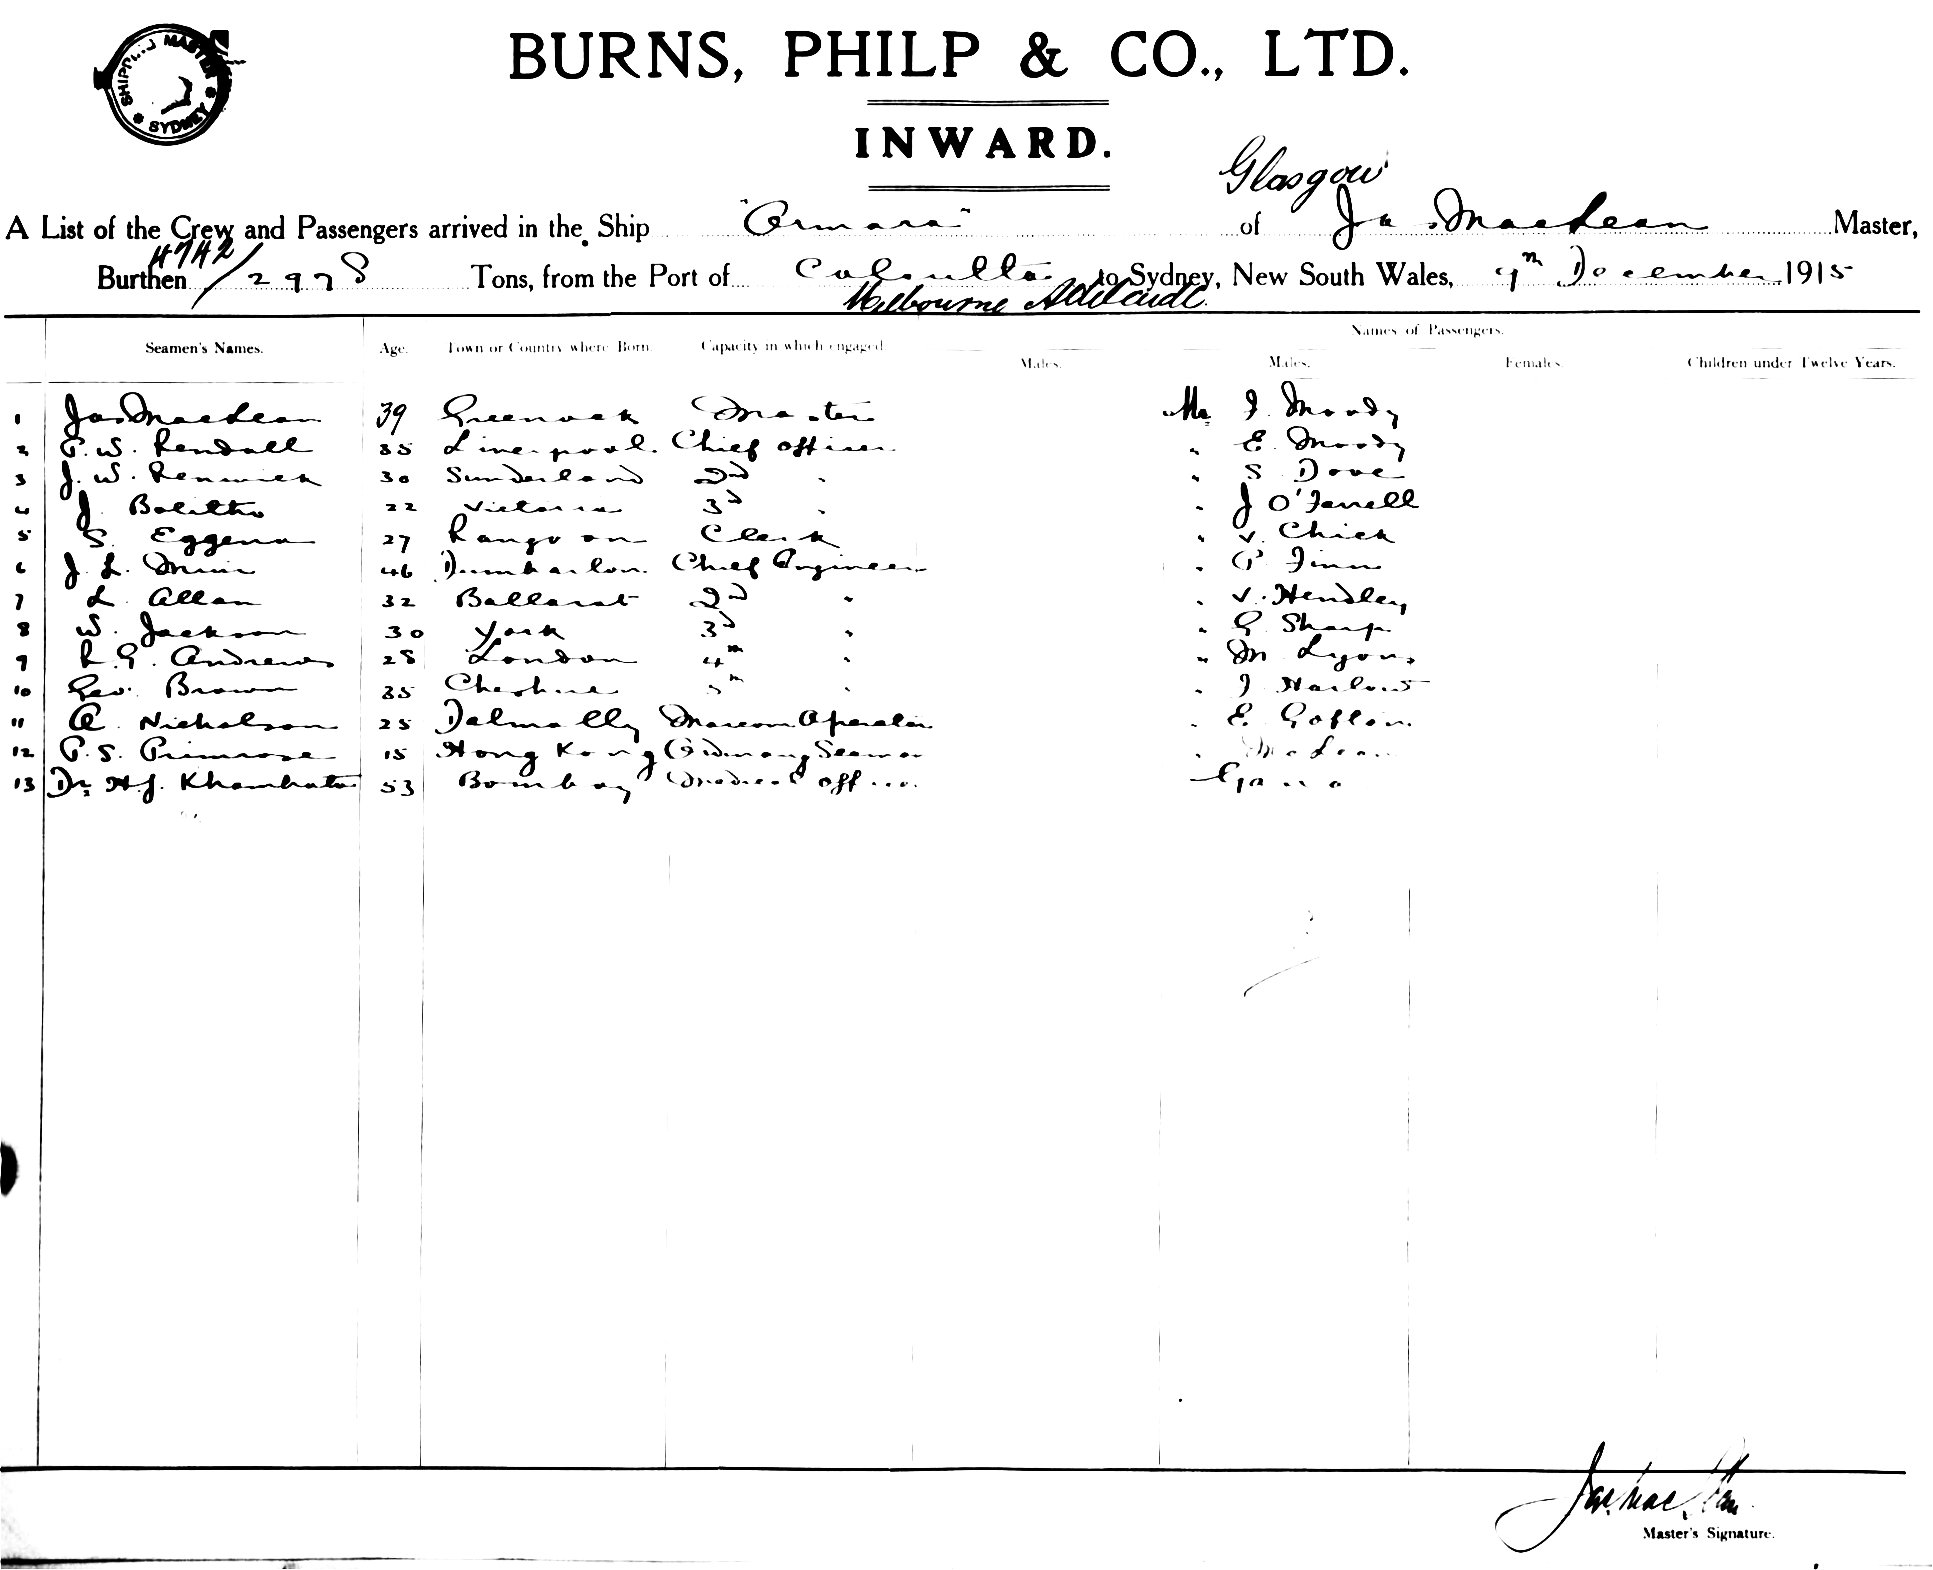 SHIPPING MASTER SYDNEY
BURNS, PHILP & CO., LTD.
INWARD.
Glasgow
A List of the Crew and Passengers arrived in the Ship "Armara" of Jas MacLean Master,
Burthen 4742/2978 Tons, from the Port of Calcutta to Sydney, New South Wales, 9th December 1915
Melbourne Adelaide
Names of Passengers.
Seamen's Names. Age. Town or Country where Born. Capacity in which engaged
Males. Males. Females Children under Twelve Years.
1 Jas MacLean 39 Greenock Master Mr J. Moody
2 P. W. Kendall 35 Liverpool. Chief Officer " E. Moody
3 J. W. Renwick 30 Sunderland 2nd " " S Dove
4 J. Bolitho 22 Victoria 3d " " J O'Ferrell
5 S. Eggena 27 Rangoon Clerk " V. Chick
6 J. L. Muir 46 Dumbarton. Chief Engineer " P Finn
7 L. Allan 32 Ballarat 2nd " " V. Hendley
8 W. Jackson 30 York 3d " " G Sharp
9 R. G. Andrews 28 London 4th " " M Lyons
10 Geo. Brown 35 Cheshire 5th " " J Harlow
11 A. Nicholson 25 Dalmally Marconi Operator " E.
12 P. S. Primrose 15 Hong Kong Ordinary Seaman " McLean
13 Dr H. J. Khambata 53 Bombay Medical Off
Jas MacLean
Master's Signature.